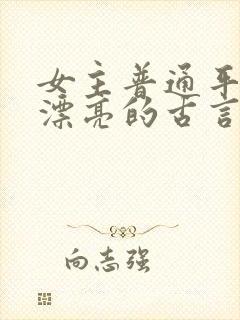 女主普通平
漂亮的古言
向志强